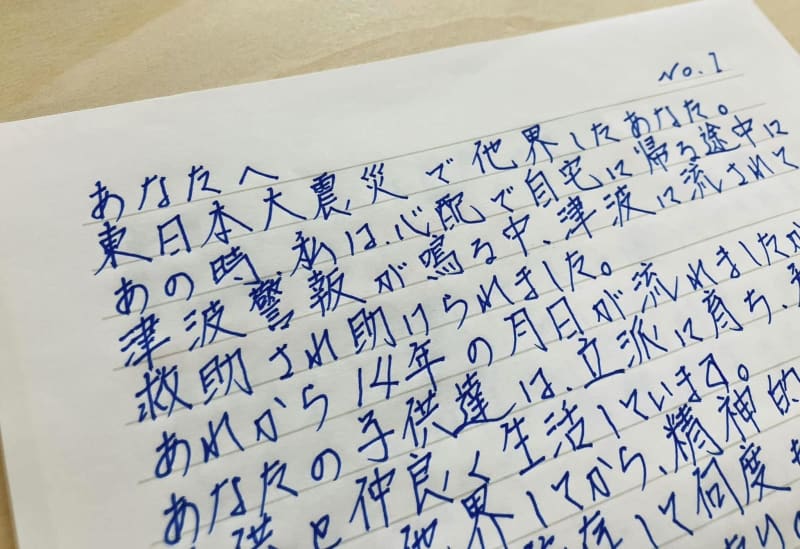 No.1
あなたへ
東日本大震災で他界したあなた。
あの時、私は、心配で自宅に帰る途中に
津波警報が鳴る中、津波に流されて
救助され助けられました。
あれから14年の月日が流れましたが
あなたの子供達は、立派に育ち、
供と仲良く生活しています。
他界してから、精神的
して何度も